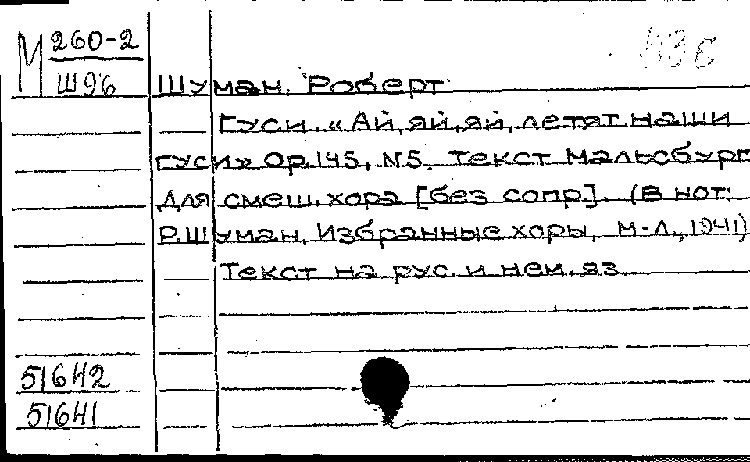 М 260-2
Ш96
Шуман, Роберт
Гуси. «Ай, яй, яй, летят наши
гуси» Ор.145, N5. Текст Мальсбург
Для смеш. хора [без сопр.]. (В нот:
Р.Шуман. Избранные хоры, М-Л., 1941)
Текст на рус. и нем. яз.
51642
51641